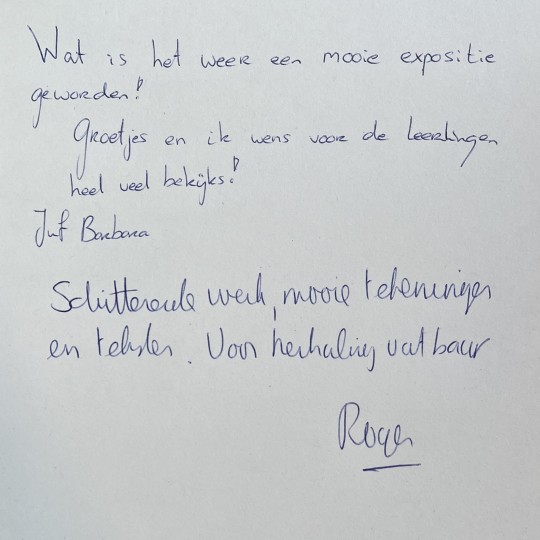 Wat is het weer een mooie expositie
geworden!
Groetjes en ik wens voor de leerlingen
heel veel bekijks!
Juf Barbara
Schitterende werk, mooie tekeningen
en teksten. Voor herhaling vatbaar
Roger